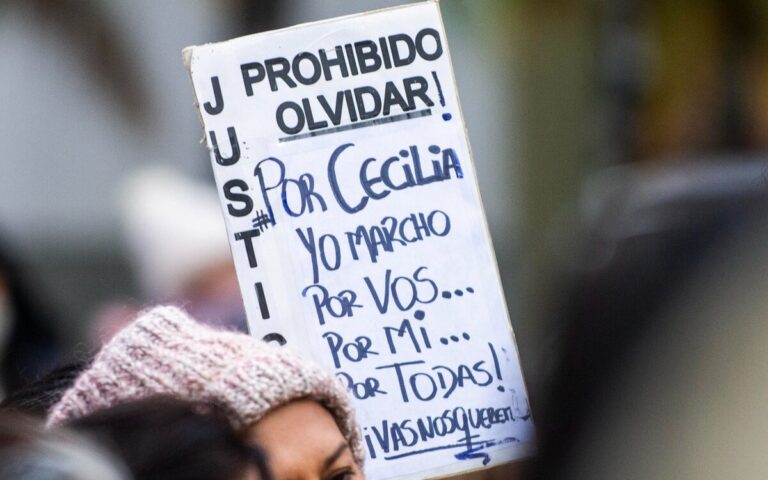 JUSTIC
PROHIBIDO
OLVIDAR!
#POR CECILIA
YO MARCHO
POR VOS...
POR MI...
POR TODAS!
IVAS NOS QUEREM